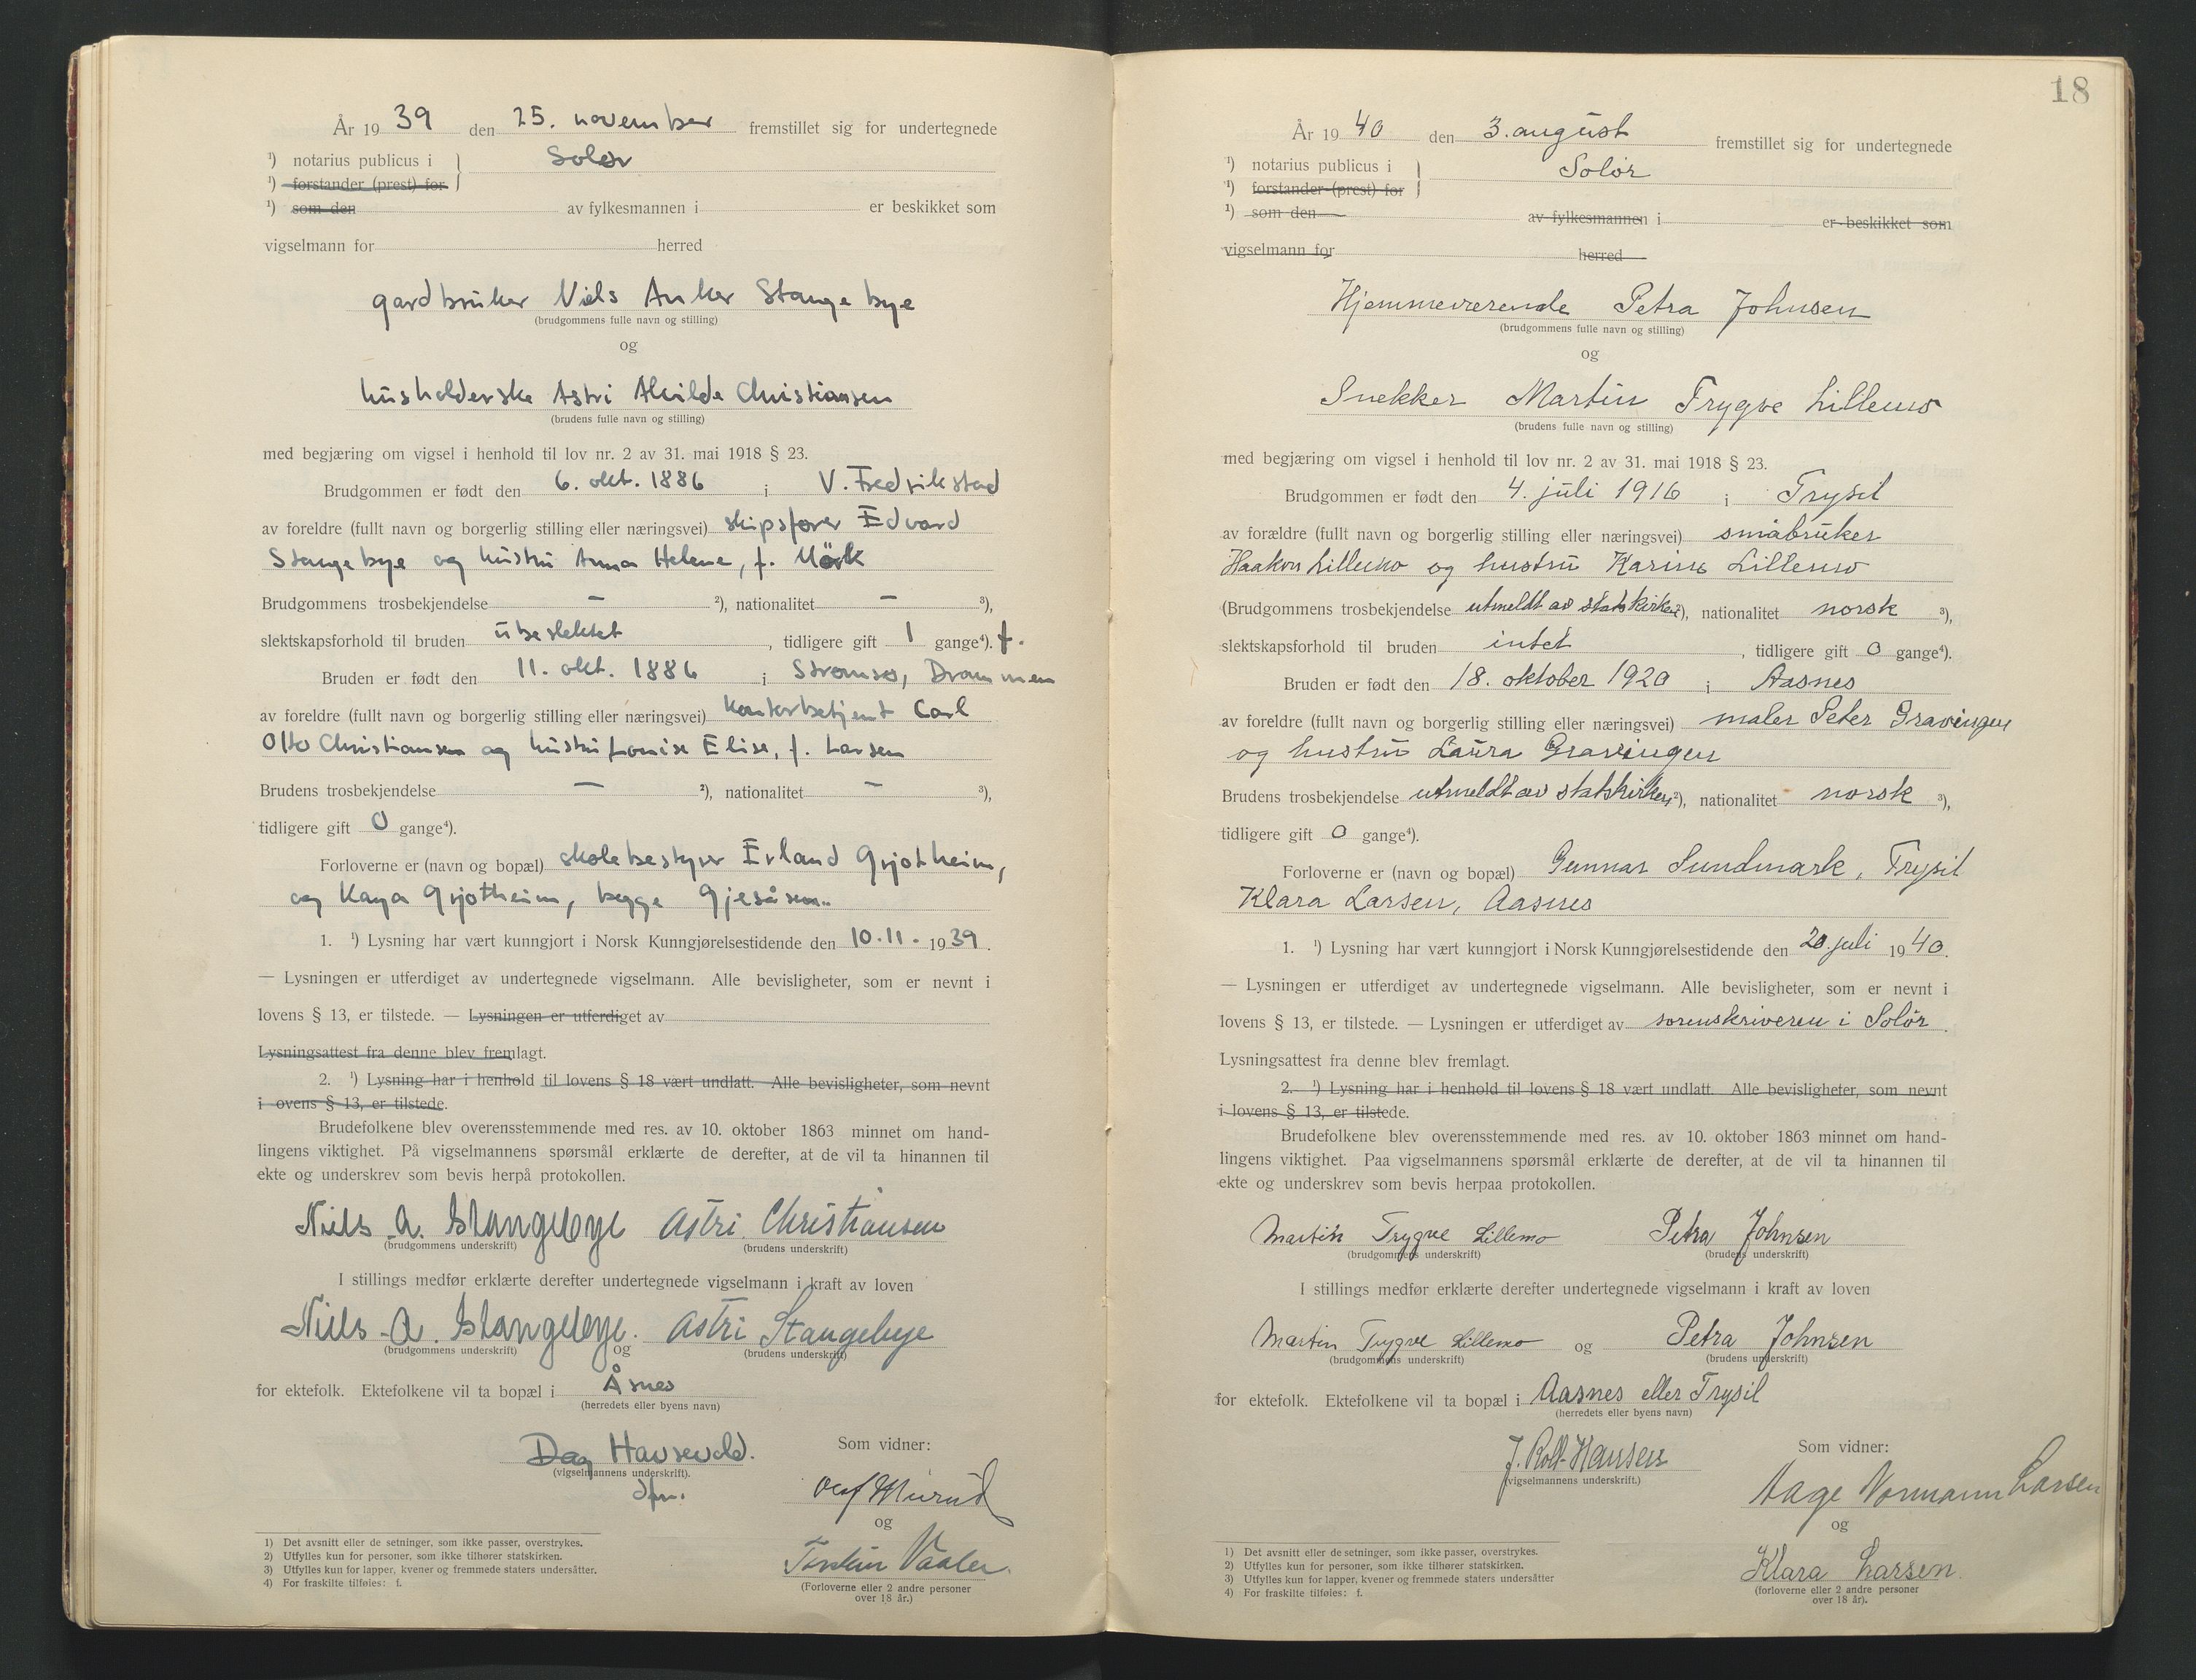 År 19 39 den 25. november fremstillet sig for undertegnede
¹) notarius publicus i } Solør
¹) forstander (prest) for
¹) som den av fylkesmannen i er beskikket som
vigselmann for herred
gardbruker Niels Anker Stangebye
(brudgommens fulle navn og stilling)
og
husholderske Astri Alvilde Christiansen
(brudens fulle navn og stilling)
med begjæring om vigsel i henhold til lov nr. 2 av 31. mai 1918 § 23.
Brudgommen er født den 6. okt. 1886 i V. Fredrikstad
av foreldre (fullt navn og borgerlig stilling eller næringsvei) skipsfører Edvard
Stangebye og hustru Anna Helene, f. Mörk
Brudgommens trosbekjendelse — ²), nationalitet — ³),
slektskapsforhold til bruden ubeslektet , tidligere gift 1 gange⁴). f.
Bruden er født den 11. okt. 1886 i Strømsø, Drammen
av foreldre (fullt navn og borgerlig stilling eller næringsvei) kontorbetjent Carl
Otto Christiansen og hustru Louise Elise, f. Larsen
Brudens trosbekjendelse — ²), nationalitet — ³),
tidligere gift 0 gange⁴).
Forloverne er (navn og bopæl) skolebestyrer Erland Grjotheim,
og Kaya Grjotheim, begge Gjesåsen.
1. ¹) Lysning har vært kunngjort i Norsk Kunngjørelsestidende den 10.11. 19 39.
— Lysningen er utferdiget av undertegnede vigselmann. Alle bevisligheter, som er nevnt i
lovens § 13, er tilstede. — Lysningen er utferdiget av
Lysningsattest fra denne blev fremlagt.
2. ¹) Lysning har i henhold til lovens § 18 vært undlatt. Alle bevisligheter, som nevnt
i ovens § 13, er tilstede.
Brudefolkene blev overensstemmende med res. av 10. oktober 1863 minnet om hand-
lingens viktighet. På vigselmannens spørsmål erklærte de derefter, at de vil ta hinannen til
ekte og underskrev som bevis herpå protokollen.
Niels A. Stangebye Astri Christiansen
(brudgommens underskrift) (brudens underskrift)
I stillings medfør erklærte derefter undertegnede vigselmann i kraft av loven
Niels A. Stangebye. Astri Stangebye
(brudgommens underskrift) og (brudens underskrift)
for ektefolk. Ektefolkene vil ta bopæl i Åsnes
(herredets eller byens navn)
Dag Hausevold. Som vidner:
(vigselmannens underskrift).
dfm.
Olaf Murud
og
Torstein Vaaler.
(Forloverne eller 2 andre personer
over 18 år.)
1) Det avsnitt eller de setninger, som ikke passer, overstrykes.
2) Utfylles kun for personer, som ikke tilhører statskirken.
3) Utfylles kun for lapper, kvener og fremmede staters undersåtter.
4) For fraskilte tilføies: f.
18
År 19 40 den 3. august fremstillet sig for undertegnede
¹) notarius publicus i } Solør
¹) forstander (prest) for
¹) som den av fylkesmannen i er beskikket som
vigselmann for herred
Hjemmeværende Petra Johnsen
(brudgommens fulle navn og stilling)
og
Snekker Martin Trygve Lillemo
(brudens fulle navn og stilling)
med begjæring om vigsel i henhold til lov nr. 2 av 31. mai 1918 § 23.
Brudgommen er født den 4. juli 1916 i Trysil
av forældre (fullt navn og borgerlig stilling eller næringsvei) småbruker
Haakon Lillemo og hustru Karine Lillemo
(Brudgommens trosbekjendelse utmeldt av statskirken ²), nationalitet norsk ³),
slektskapsforhold til bruden intet , tidligere gift 0 gange⁴).
Bruden er født den 18. oktober 1920 i Aasnes
av foreldre (fullt navn og borgerlig stilling eller næringsvei) maler Peter Gravingen
og hustru Laura Gravingen
Brudens trosbekjendelse utmeldt av statskirken ²), nationalitet norsk ³),
tidligere gift 0 gange⁴).
Forloverne er (navn og bopæl) Gunnar Sundmark, Trysil
Klara Larsen, Aasnes
1. ¹) Lysning har vært kunngjort i Norsk Kunngjørelsestidende den 20. juli 19 40.
— Lysningen er utferdiget av undertegnede vigselmann. Alle bevisligheter, som er nevnt i
lovens § 13, er tilstede. — Lysningen er utferdiget av sorenskriveren i Solør.
Lysningsattest fra denne blev fremlagt.
2. ¹) Lysning har i henhold til lovens § 18 vært undlatt. Alle bevisligheter, som nevnt
i lovens § 13, er tilstede.
Brudefolkene blev overensstemmende med res. av 10. oktober 1863 minnet om hand-
lingens viktighet. Paa vigselmannens spørsmål erklærte de derefter, at de vil ta hinannen til
ekte og underskrev som bevis herpaa protokollen.
Martin Trygve Lillemo Petra Johnsen
(brudgommens underskrift) (brudens underskrift)
I stillings medfør erklærte derefter undertegnede vigselmann i kraft av loven
Martin Trygve Lillemo og Petra Johnsen
(brudgommens underskrift) (brudens underskrift)
for ektefolk. Ektefolkene vil ta bopæl i Aasnes eller Trysil
(herredets eller byens navn)
J. Roll-Hansen Som vidner:
(vigselmannens underskrift.)
Aage Normann Larsen
og
Klara Larsen.
(forloverne eller 2 andre personer
over 18 år).
1) Det avsnitt eller de setninger, som ikke passer, overstrykes.
2) Utfylles kun for personer, som ikke tilhører statskirken.
3) Utfylles kun for lapper, kvener og fremmede staters undersåtter
4) For fraskilte tilføies: f.